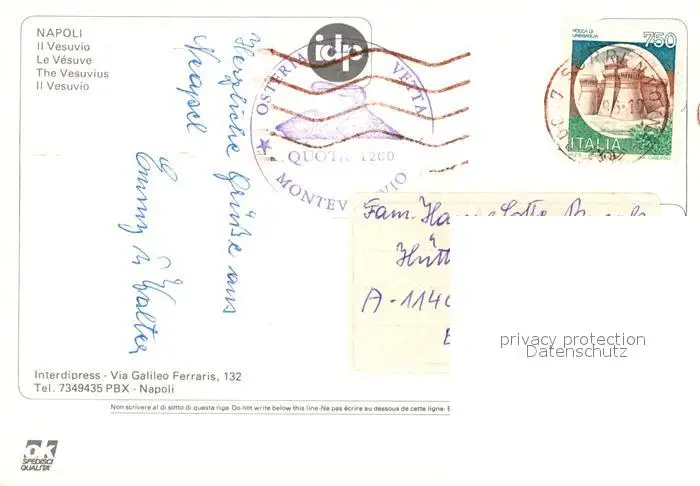 NAPOLI
Il Vesuvio
Le Vésuve
The Vesuvius
Il Vesuvio
Herzliche Grüße aus
Neapel
Emmy u Walter
idp
OSTERIA VETTA
QUOTA 1200
MONTEVESUVIO
ROCCA DI
URBISAGLIA
750
ITALIA
Fam.
A-114
privacy protection
Datenschutz
Interdipress - Via Galileo Ferraris, 132
Tel. 7349435 PBX - Napoli
Non scrivere al di sotto di questa riga-Do not write below this line-Ne pas écrire au dessous de cette ligne-
ok
SPEDISCI
QUALITÀ